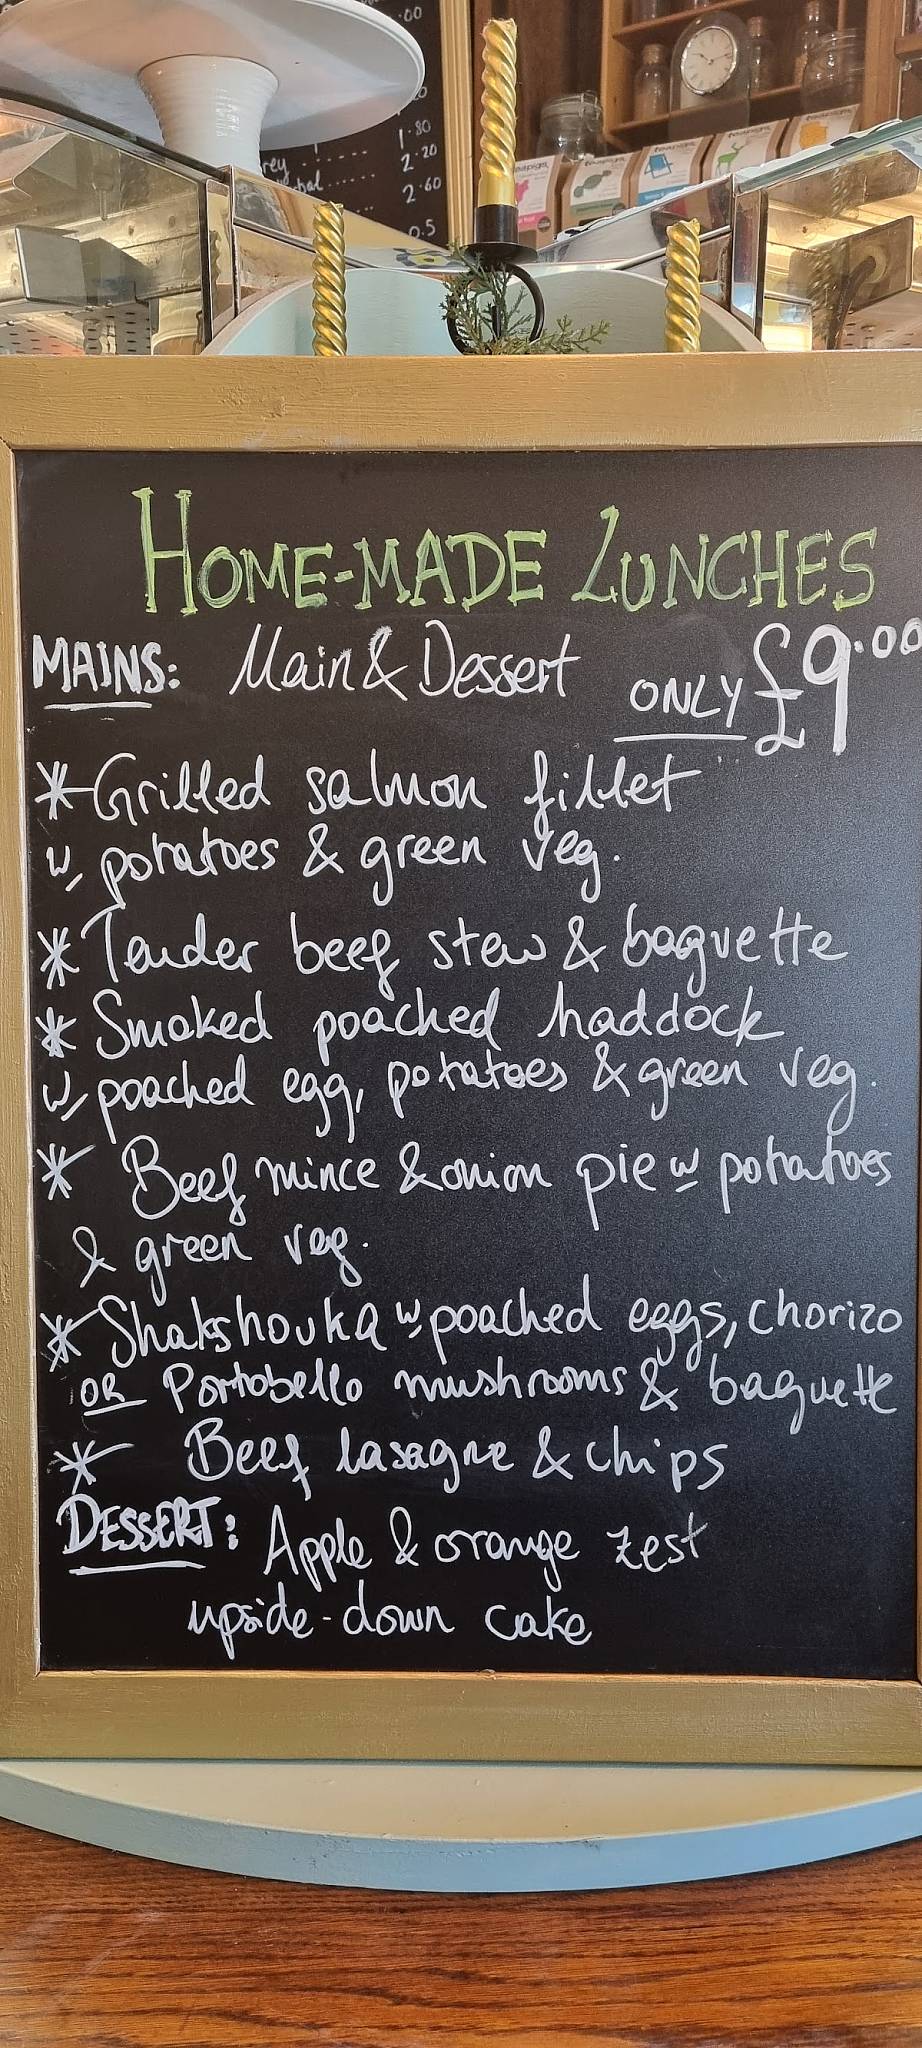 .00
1.80
2.20
2.60
0.5
teapigs.
teapigs.
HOME-MADE LUNCHES
MAINS: Main & Dessert ONLY £9.00
* Grilled salmon fillet
w/ potatoes & green veg.
* Tender beef stew & baguette
* Smoked poached haddock
w/ poached egg, potatoes & green veg.
* Beef mince & onion pie w potatoes
& green veg.
* Shakshouka w/ poached eggs, chorizo
OR Portobello mushrooms & baguette
* Beef lasagne & chips
DESSERT: Apple & orange zest
upside-down cake